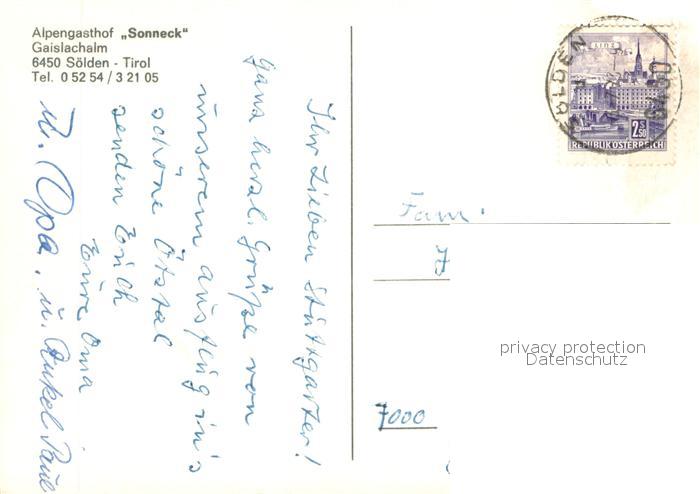 Alpengasthof „Sonneck“
Gaislachalm
6450 Sölden - Tirol
Tel. 0 52 54 / 3 21 05
Ihr Lieben Stuttgarter!
Ganz herzl. Grüße von
unserem ausflug in's
schöne Ötztal
senden Euch
Eure Oma
u. Opa. u. Onkel Paul
SÖLDEN
LINZ
2.50
REPUBLIK ÖSTERREICH
Fam.
7000
privacy protection
Datenschutz